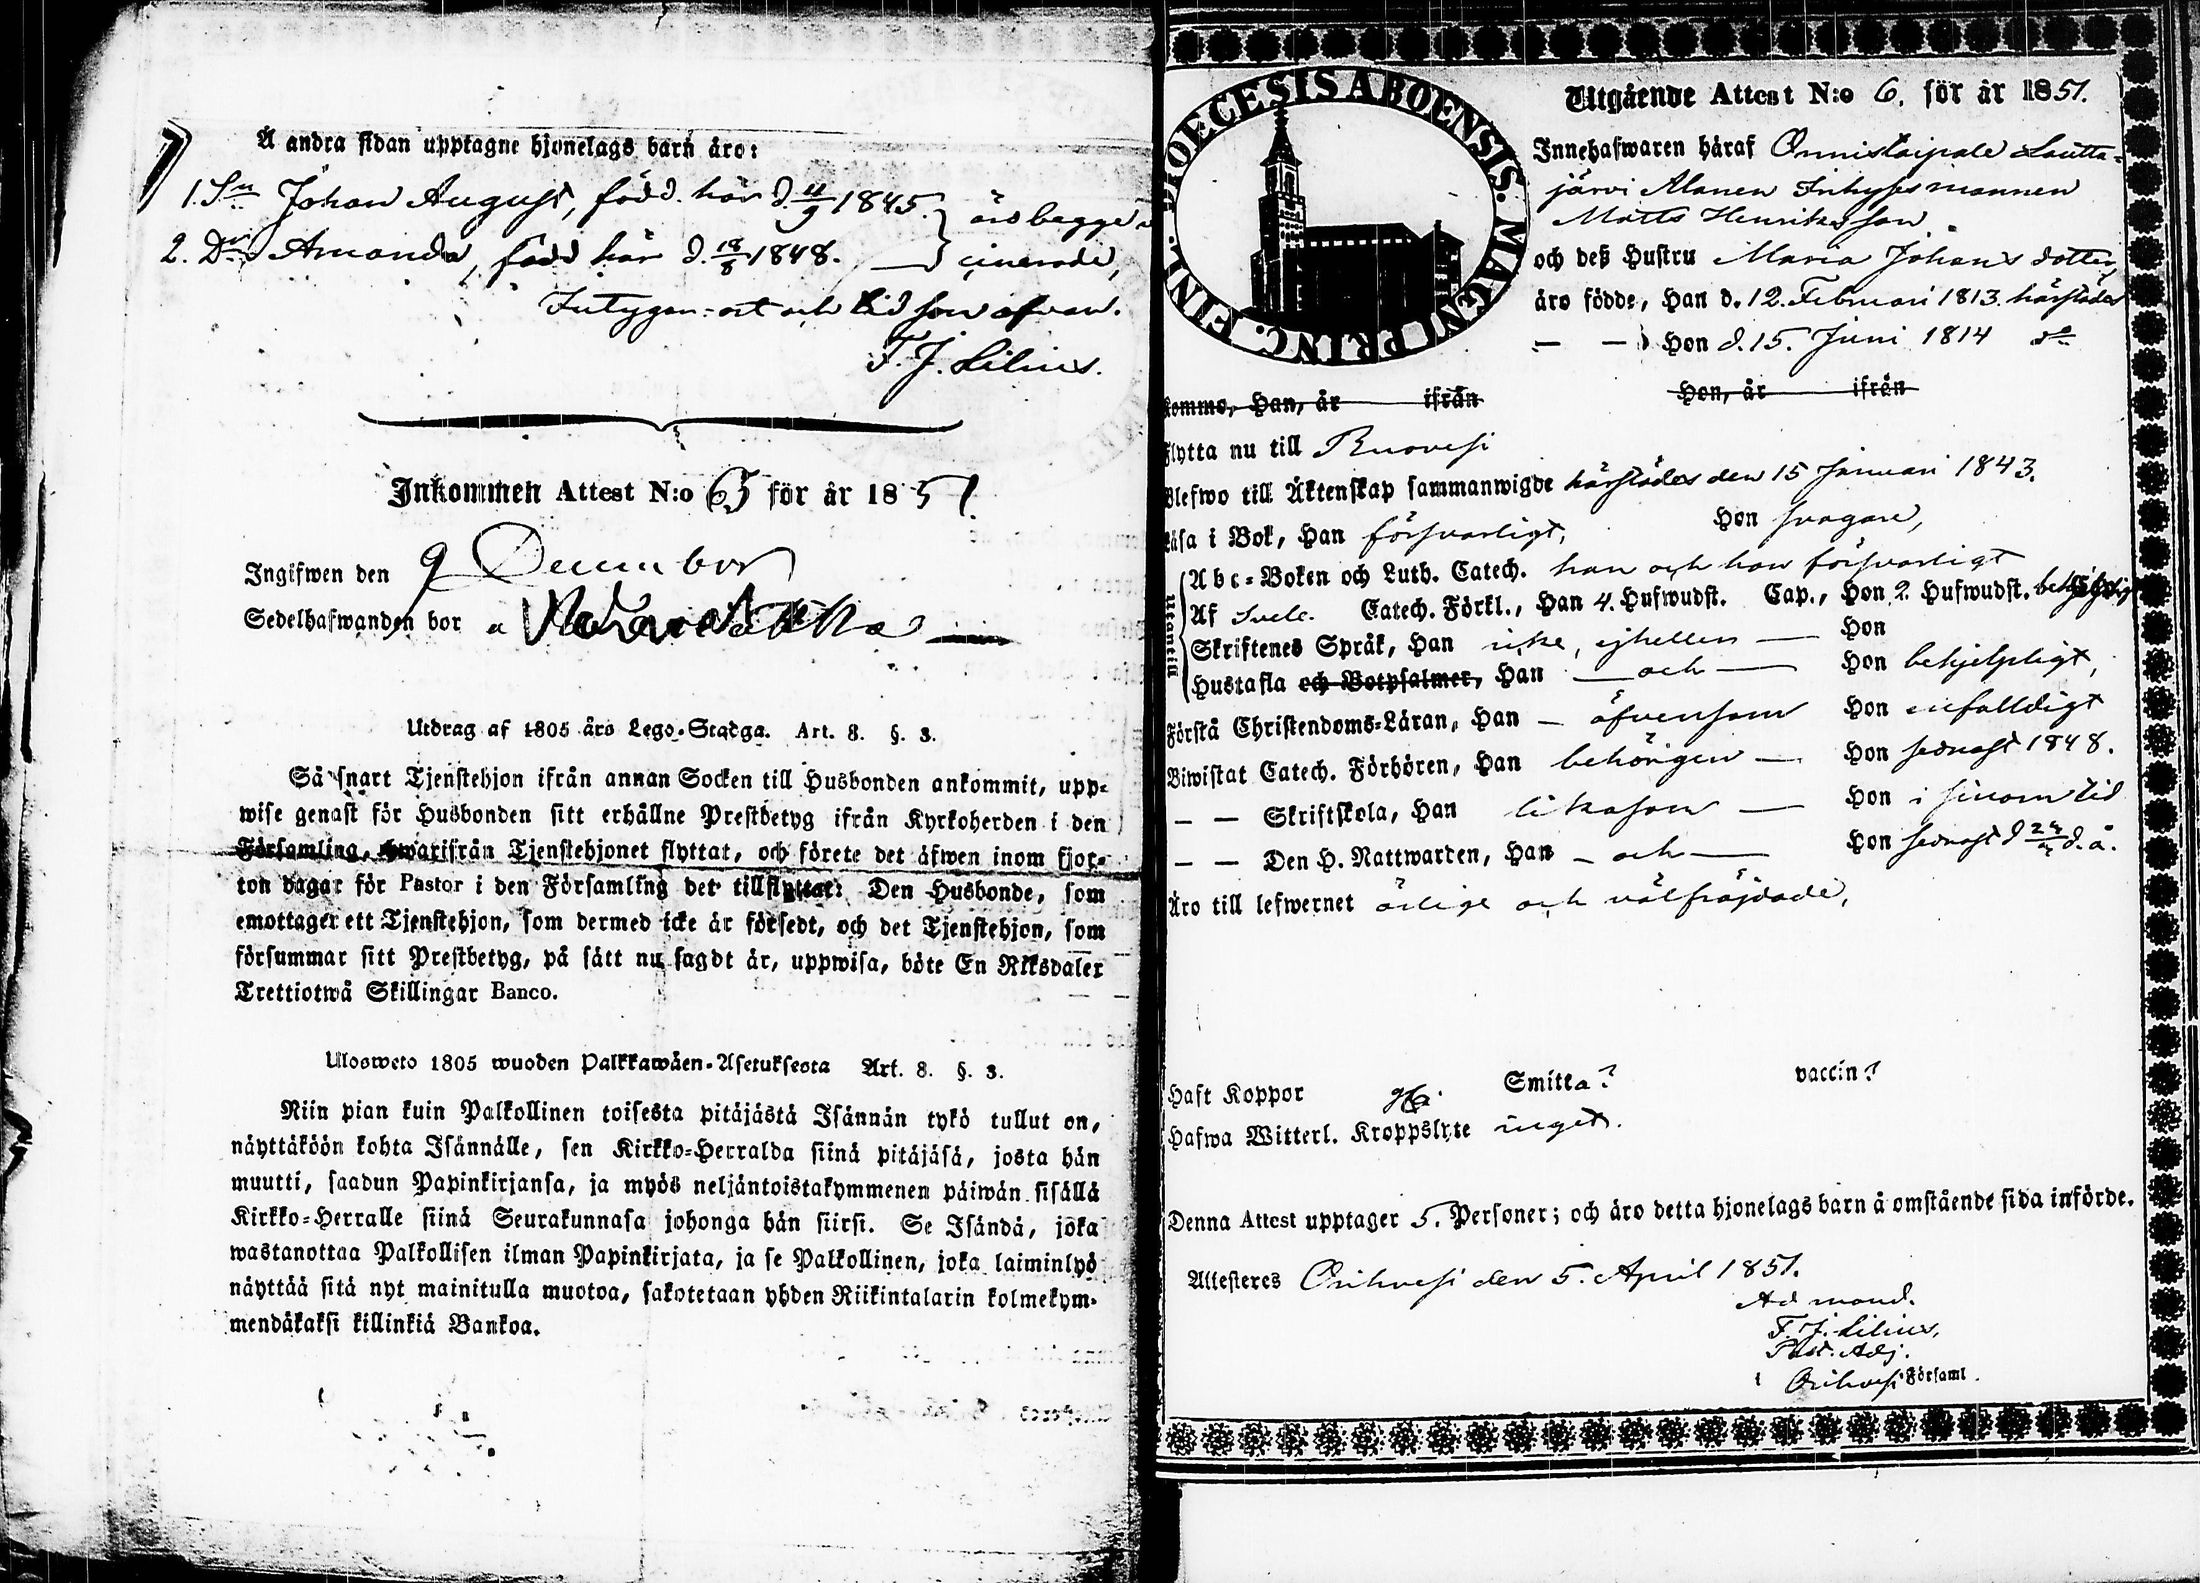 Å andra sidan upptagne hjonelags barn äro:
1. Sn Johan August, född här d. 11/9 1845.
äro begge
2. Dr Amanda, född här d. 18/8 1848.
Intygar ort och tid som ofvan.
F. J. Lilius.
Inkommen Attest N:o 65 för år 1851
Ingifwen den 9 December
Sedelhafwanden bor
Utdrag af 1805 års Lego-Stadga. Art. 8. §. 3.
Så snart Tjenstehjon ifrån annan Socken till Husbonden ankommit, upp-
wise genast för Husbonden sitt erhållne Prestbetyg ifrån Kyrkoherden i den
Församling, hwarifrån Tjenstehjonet flyttat, och förete det äfwen inom fjor-
ton dagar för Pastor i den Församling det tillflyttat: Den Husbonde, som
emottager ett Tjenstehjon, som dermed icke är försedt, och det Tjenstehjon, som
försummar sitt Prestbetyg, på sätt nu sagdt är, uppwisa, böte En Riksdaler
Trettiotwå Skillingar Banco.
Ulosweto 1805 wuoden Palkkawäen-Asetuksesta Art. 8. §. 3.
Niin pian kuin Palkollinen toisesta pitäjästä Isännän tykö tullut on,
näyttäköön kohta Isännälle, sen Kirkko-Herralda siinä pitäjäsä, josta hän
muutti, saadun Papinkirjansa, ja myös neljäntoistakymmenen päiwän sisällä
Kirkko-Herralle siinä Seurakunnasa johonga hän siirsi. Se Isändä, joka
wastanottaa Palkollisen ilman Papinkirjata, ja se Palkollinen, joka laiminlyö
näyttää sitä nyt mainitulla muotoa, sakotetaan yhden Riikintalarin kolmekym-
mendäkaksi killinkiä Bankoa.
DIOECESIS ABOENSIS. MAGNI PRINC. FINL.
Utgående Attest N:o 6. för år 1851.
Innehafwaren häraf Onnistaipale Lautta-
järvi Alanen Inhysesmannen
Matts Henriksson
och deß Hustru Maria Johans dotter,
äro födde, Han d. 12. Februari 1813. härstädes
— — Hon d. 15. Juni 1814 do
komme, Han, år ifrån Hon, år ifrån
Flytta nu till Ruovesi
Blefwo till Äktenskap sammanwigde härstädes den 15 Januari 1843.
Läsa i Bok, Han försvarligt, Hon svagare,
Utantill
Abc-Boken och Luth. Catech. han och hon försvarligt
Af Sveb. Catech. Förkl., Han 4. Hufwudst. Cap., Hon 2 Hufwudst.
Skriftenes Språk, Han icke, ejheller — Hon
Hustafla och Botpsalmer, Han — och — Hon behjelpligt,
Förstå Christendoms-Läran, Han — äfvensom Hon enfalldigt
Biwistat Catech. Förhören, Han behörigen — Hon sednast 1848.
— — Skriftskola, Han likasom — Hon i sinom tid
— — Den H. Nattwarden, Han — och — Hon sednast d. å.
Äro till lefwernet ärlige och välfräjdade,
Haft Koppor Smitta? vaccin?
Hafwa Witterl. Kroppslyte inget.
Denna Attest upptager 5. Personer; och äro detta hjonelags barn å omstående sida införde.
Attesteres Orihvesi den 5. April 1851.
Ad mand.
F. J. Lilius,
Past. Adj.
i Orihvesi Församl.